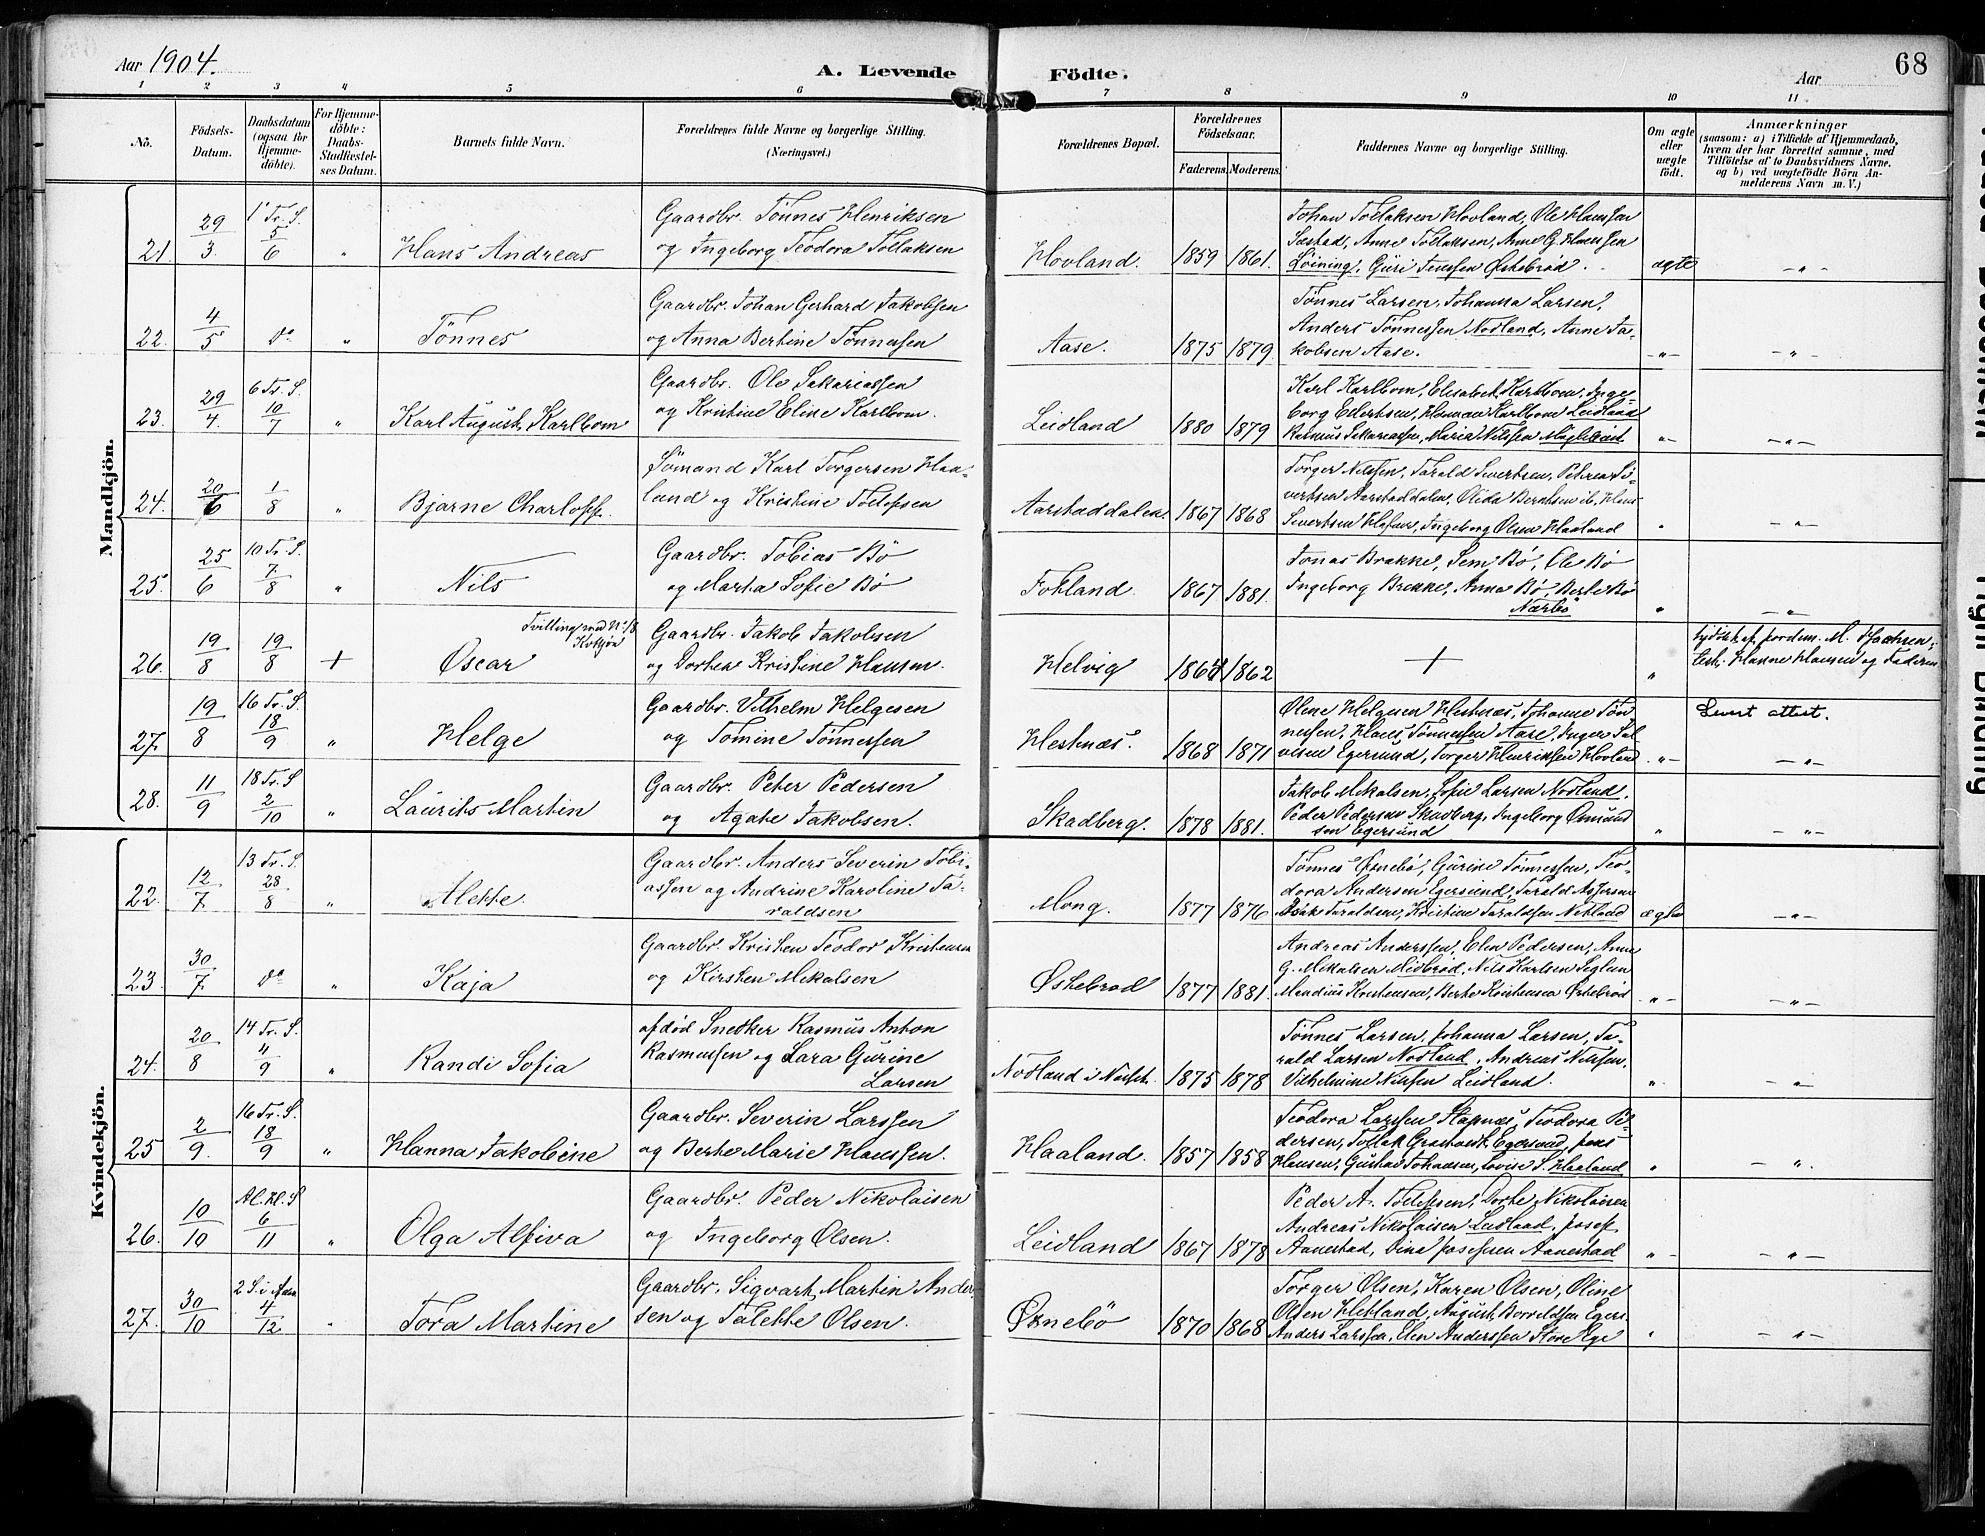 Aar 1904.
A. Levende Födte.
Aar
68
1 2 3 4 5 6 7 8 9 10 11
No.
Födsels-Datum.
Daabsdatum (ogsaa for Hjemme-döbte).
For Hjemme-döbte: Daabs-Stadfæstel-ses Datum.
Barnets fulde Navn.
Forældrenes fulde Navne og borgerlige Stilling.
(Næringsvei.)
Forældrenes Bopæl.
Forældrenes Födselsaar.
Faderens. Moderens.
Faddernes Navne og borgerlige Stilling.
Om ægte eller uægte født.
Anmærkninger
(saasom: a) i Tilfælde af Hjemmedaab,
hvem der har forrettet samme, med
Tilföielse af to Daabsvidners Navne,
og b) ved uægtefödte Börn An-
melderens Navn m. V.)
Mandkjön.
21. 29/3 1' Tr. S. 5/6 " Hans Andreas
Gaardbr. Tönnes Henriksen
og Ingeborg Teodora Tollaksen
Hovland. 1859 1861.
Johan Tollaksen Hovland, Ole Hanssen
Sæstad, Anne Tollaksen, Anne G. Hanssen
Løining, Guri Østebrød.
ægte -"-
22. 4/5 do " Tönnes
Gaardbr. Johan Gerhard Jakobsen
og Anna Bertine Tönnessen
Aase. 1875 1879.
Tönnes Larsen, Johanna Larsen,
Anders Tönnessen Nodland, Anne Ja-
kobsen Aase.
-"- -"-
23. 29/4 6 Tr. S. 10/7 " Karl August Karlbom
Gaardbr. Ole Sakariassen
og Kristine Eline Karlbom.
Leidland 1880 1879
Karl Karlbom, Elisabet Karlbom, Inge-
borg, Karlbom Leidland
Rasmus Sakariassen, Maria Nilssen
-"- -"-
24. 20/6 1/8 " Bjarne Charloff.
Sömand Karl Torgersen Haa-
land og Kristine Tollefsen
Aarstaddalen. 1867 1868
Torger Nilssen, Tarald Sivertsen, Petrea Si-
vertsen Aarstaddalen, Olida Berntsen ib., Hans
Sivertsen, Ingeborg Olsen Haaland
" -"-
25. 25/6 10 Tr. S. 7/8 " Nils
Gaardbr. Tobias Bö
og Marta Sofie Bö
Fotland. 1867 1881.
Jonas Brække, Sem Bö, Ole Bö
Ingeborg Brekke, Anna Bö, Berte Bö
Nærbö
" -"-
26. 19/8 19/8 + Oscar
Tvilling med No. 18 Kvkjön
Gaardbr. Jakob Jakobsen
og Dortea Kristine Hansen.
Helvig 1864 1862
+
" M. Isachsen,
Hanne Hansen og Faderen
27. 19/8 16 Tr. S. 18/9 " Helge
Gaardbr. Vilhelm Helgesen
og Tomine Tönnessen
Hestnæs. 1868 1871
Olene Helgesen Hestnæs, Johanne Tön-
nessen, Hans Tönnessen Aase, Inger Sal-
vesen Egersund, Torger Henriksen Hovland
-"- Levert attest.
-"-
28. 11/9 18 Tr. S 2/10 " Laurits Martin
Gaardbr. Peter Pedersen
og Agate Jakobsen.
Skadberg. 1878 1881.
Jakob Mikalsen, Sofie Larsen Nodland,
Peder Pedersen Skadberg, Ingeborg Osmund
sen Egersund
" -"-
Kvindekjön.
22. 12/7 13 Tr. S. 28/8 " Alette.
Gaardbr. Anders Severin Tobi-
assen og Andrine Karoline Ta-
raldsen
Mong. 1877 1876
Tönnes Øsnebö, Gurine Tönnessen, Teo-
dora Andersen Egersund, Tarald Assersen
Isak Taraldsen, Kristine Taraldsen Netland
ægte -"-
23. 30/7 do " Kaja
Gaardbr. Kristen Teodor Kristensen
og Kirsten Mikalsen
Østebrød 1877 1881.
Andreas Anderssen, Elen Pedersen, Anne
G. Mikalsen Midbrød, Nils Karlsen Seglem
Mandius Kristensen, Berte Kristensen Østebrød
-"- -"-
24. 20/8 14 Tr. S. 4/9 " Randi Sofia
afdöd Snedker Rasmus Anton
Rasmussen og Lara Gurine
Larsen
Nodland i 1875 1878
Tönnes Larsen, Johanna Larsen, Ta-
rald Larsen Nodland, Andreas Nilssen,
Vilhelmine Nilssen Leidland.
" -"-
25 2/9. 16 Tr. S. 18/9 " Hanna Jakobine
Gaardbr. Severin Larssen
og Berte Marie Hanssen.
Haaland. 1857 1858
Teodora Larssen Skapnæs, Teodora Pe-
dersen, Tollak Egersund, Jens
Hansen, Gustav Johansen, Lovise S. Haaland
" - "-
26. 10/10 Al. Hl. S 6/11 " Olga Alfiva
Gaardbr. Peder Nikolaisen
og Ingeborg Olsen.
Leidland 1867 1878
Peder A. Tollefsen, Dorte Nikolaisen
Andreas Nikolaisen Leidland, Josef
Aanestad, Dina Josefsen Aanestad
-"- -"-
27. 30/10 2 S. i Adv. 4/12 " Tora Martine
Gaardbr. Sigvart Martin Ander-
sen og Talette Olsen.
Øsnebö 1870 1868
Torger Olsen, Karen Olsen, Oline
Olsen Hetland, August Egers.
Anders Larssen, Elen Anderssen Store Ege
" -"-